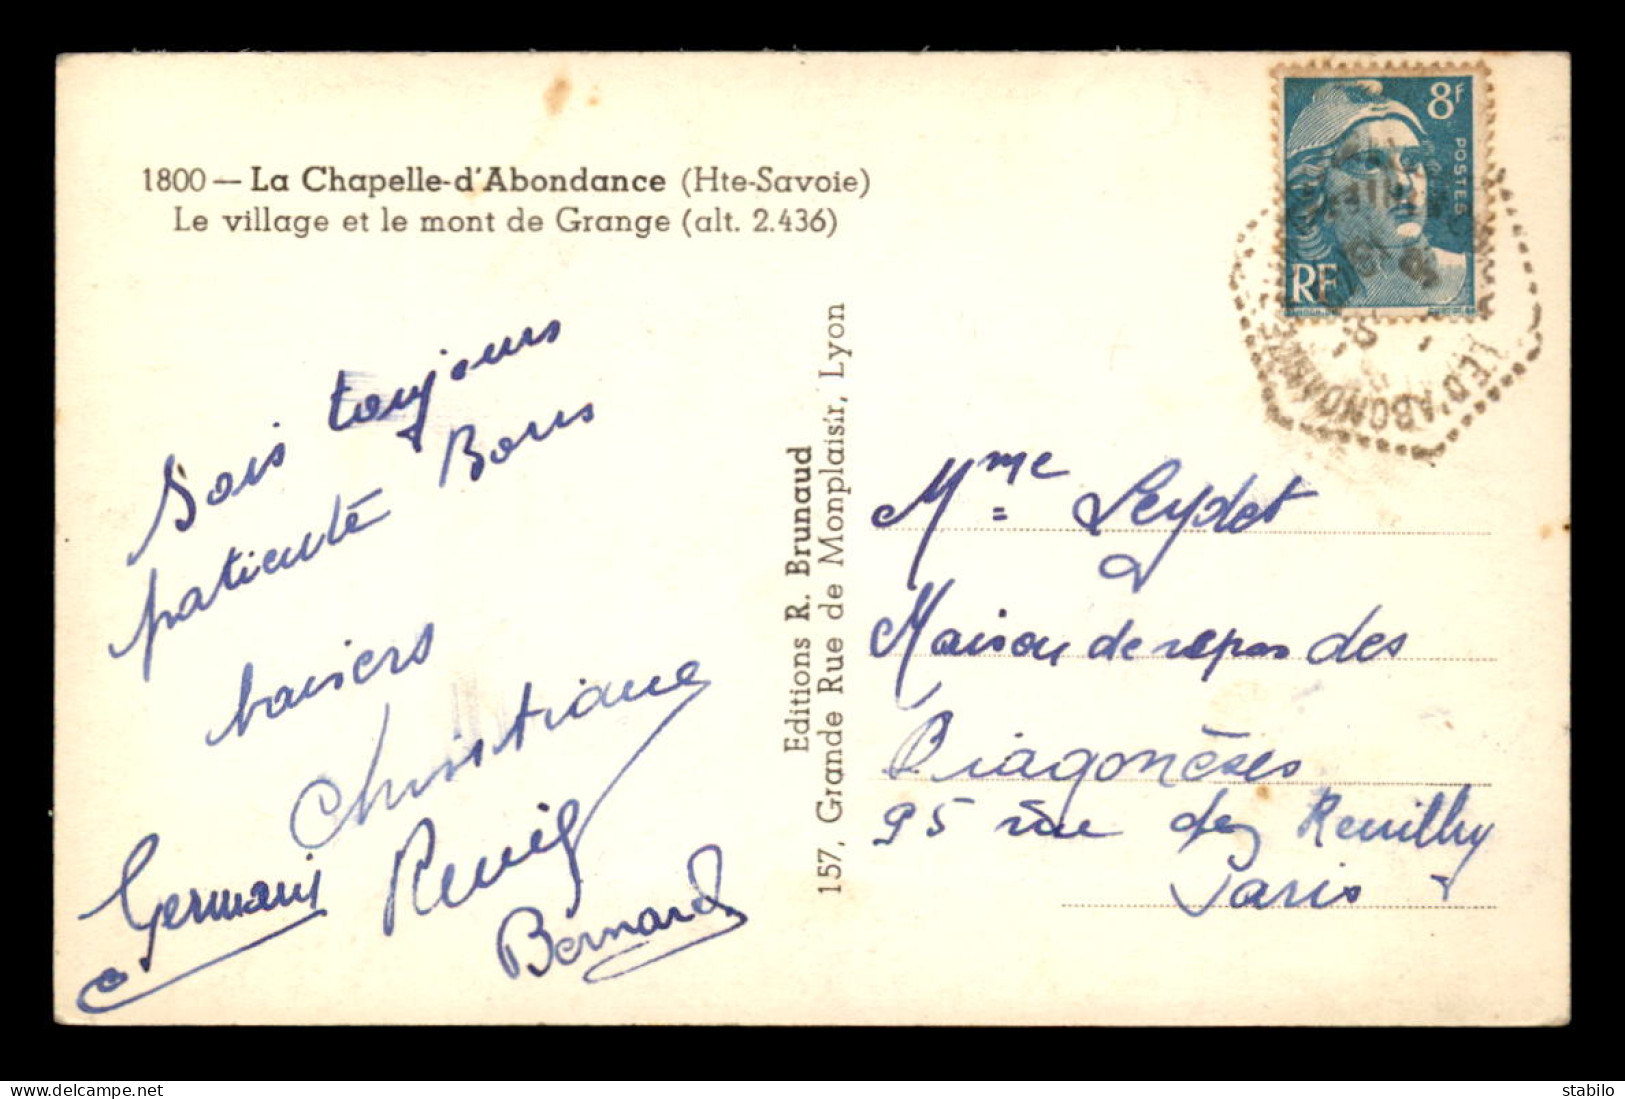 1800 — La Chapelle-d'Abondance (Hte-Savoie)
Le village et le mont de Grange (alt. 2.436)
Sois toujours
patiente Bons
baisers
Christiane
Germain
Bernard
Editions R. Brunaud
157, Grande Rue de Monplaisir, Lyon
8F
POSTES
RF
LE D'ABONDANCE
Mme Leydet
Maison de repos des
Diagonèses
95 rue de Reuilly
Paris
stabilo
See the writing at the back